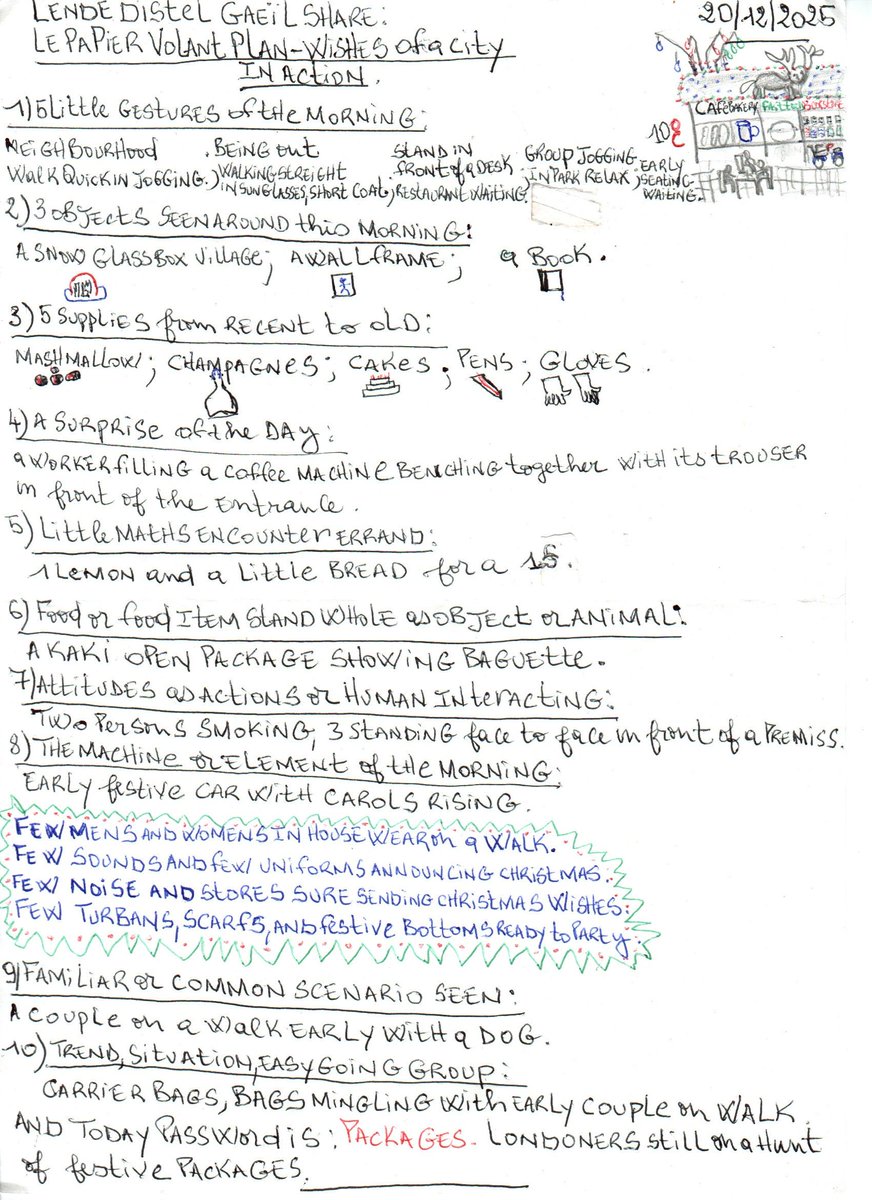 LENDE DISTEL GAEIL SHARE:
20/12/2025
LE PAPIER VOLANT PLAN-WISHES of a city
IN ACTION.
CAFE BAKERY
10€
1) 5 Little GESTURES of the MORNING:
NEIGHBOURHOOD
WALK QUICK IN JOGGING.
. BEING out
WALKING STREIGHT
IN SUNGLASSES, SHORT COAT;
STAND IN
FRONT of a DESK
RESTAURANT WAITING.
GROUP JOGGING
IN PARK RELAX;
EARLY
SEATING
WAITING.
2) 3 OBJECTS SEEN AROUND this MORNING:
A SNOW GLASS BOX VILLAGE; A WALL FRAME; a BOOK.
3) 5 SUPPLIES from RECENT to OLD:
MASHMALLOW; CHAMPAGNES; CAKES. PENS; GLOVES.
4) A SURPRISE of the DAY:
a WORKER FILLING a COFFEE MACHINE BENCHING together WITH its TROUSER
in front of the ENTRANCE.
5) Little MATHS ENCOUNTER ERRAND:
1 LEMON and a Little BREAD for a 15.
6) Food or food ITEM STAND WHOLE as OBJECT or ANIMAL:
A KAKI OPEN PACKAGE SHOWING BAGUETTE.
7) ATTITUDES as ACTIONS or HUMAN INTERACTING:
TWO PERSONS SMOKING, 3 STANDING face to face in front of a PREMISS.
8) THE MACHINE or ELEMENT of the MORNING:
EARLY festive CAR WITH CAROLS RISING.
FEW MENS AND WOMENS IN HOUSE WEAR on a WALK.
FEW SOUNDS AND few UNIFORMS ANNOUNCING CHRISTMAS.
FEW NOISE AND STORES SURE SENDING CHRISTMAS WISHES.
FEW TURBANS, SCARFS, AND festive BOTTOMS READY to PARTY.
9) FAMILIAR or COMMON SCENARIO SEEN:
A COUPLE on a WALK EARLY WITH a DOG.
10) TREND, SITUATION, EASY GOING GROUP:
CARRIER BAGS, BAGS MINGLING WITH EARLY COUPLE on WALK
AND TODAY PASSWORD IS: PACKAGES. LONDONERS still on a Hunt
of festive PACKAGES.